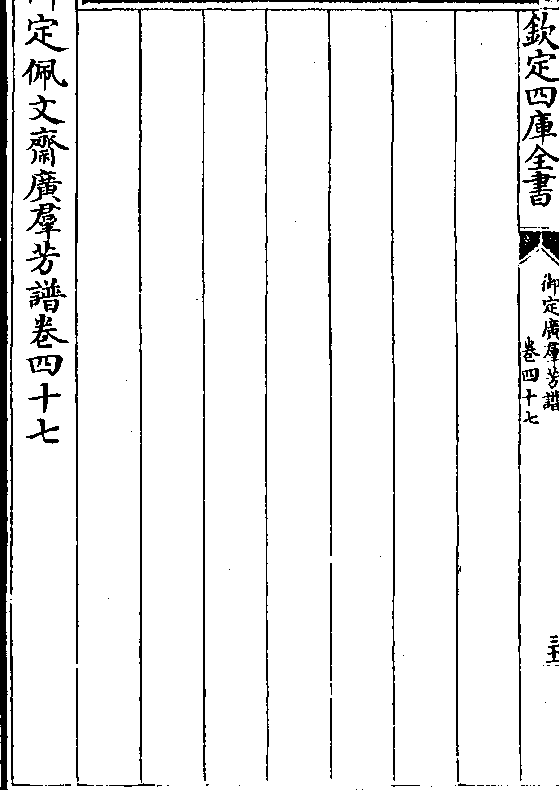 欽定四庫全書
御定廣羣芳譜
卷四十七
定佩文齋廣羣芳譜卷四十七